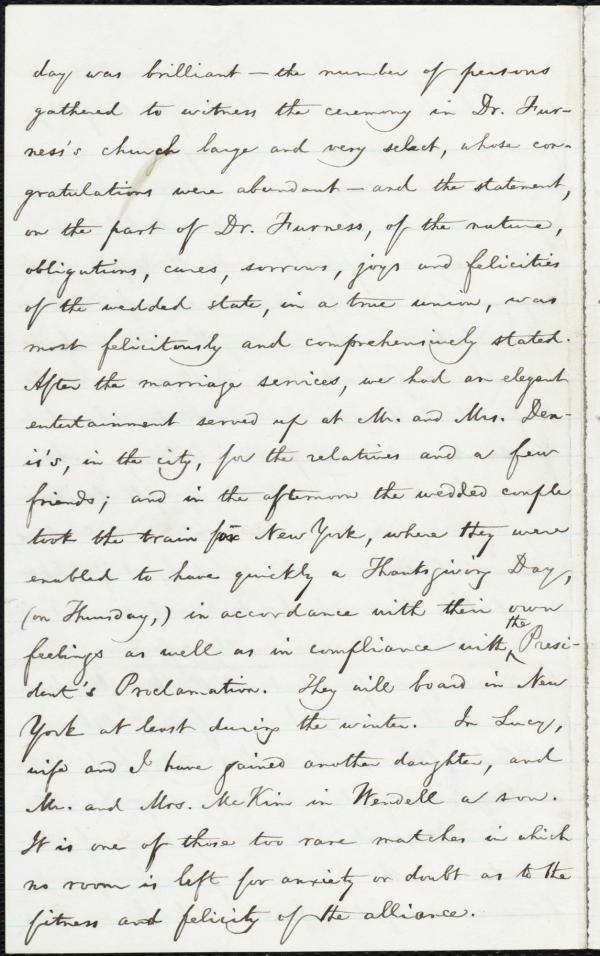 day was brilliant — the number of persons
gathered to witness the ceremony in Dr. Fur-
ness's church large and very select, whose con-
gratulations were abundant — and the statement,
on the part of Dr. Furness, of the nature,
obligations, cares, sorrows, joys and felicities
of the wedded state, in a true union, was
most felicitously and comprehensively stated.
After the marriage services, we had an elegant
entertainment served up at Mr. and Mrs. Den-
is's, in the city, for the relatives and a few
friends; and in the afternoon the wedded couple
took the train for New York, where they were
enabled to have quickly a Thanksgiving Day,
(on Thursday,) in accordance with their own
feelings as well as in compliance with the Presi-
dent's Proclamation. They will board in New
York at least during the winter. In Lucy,
wife and I have gained another daughter, and
Mr. and Mrs. McKim in Wendell a son.
It is one of those too rare matches in which
no room is left for anxiety or doubt as to the
fitness and felicity of the alliance.